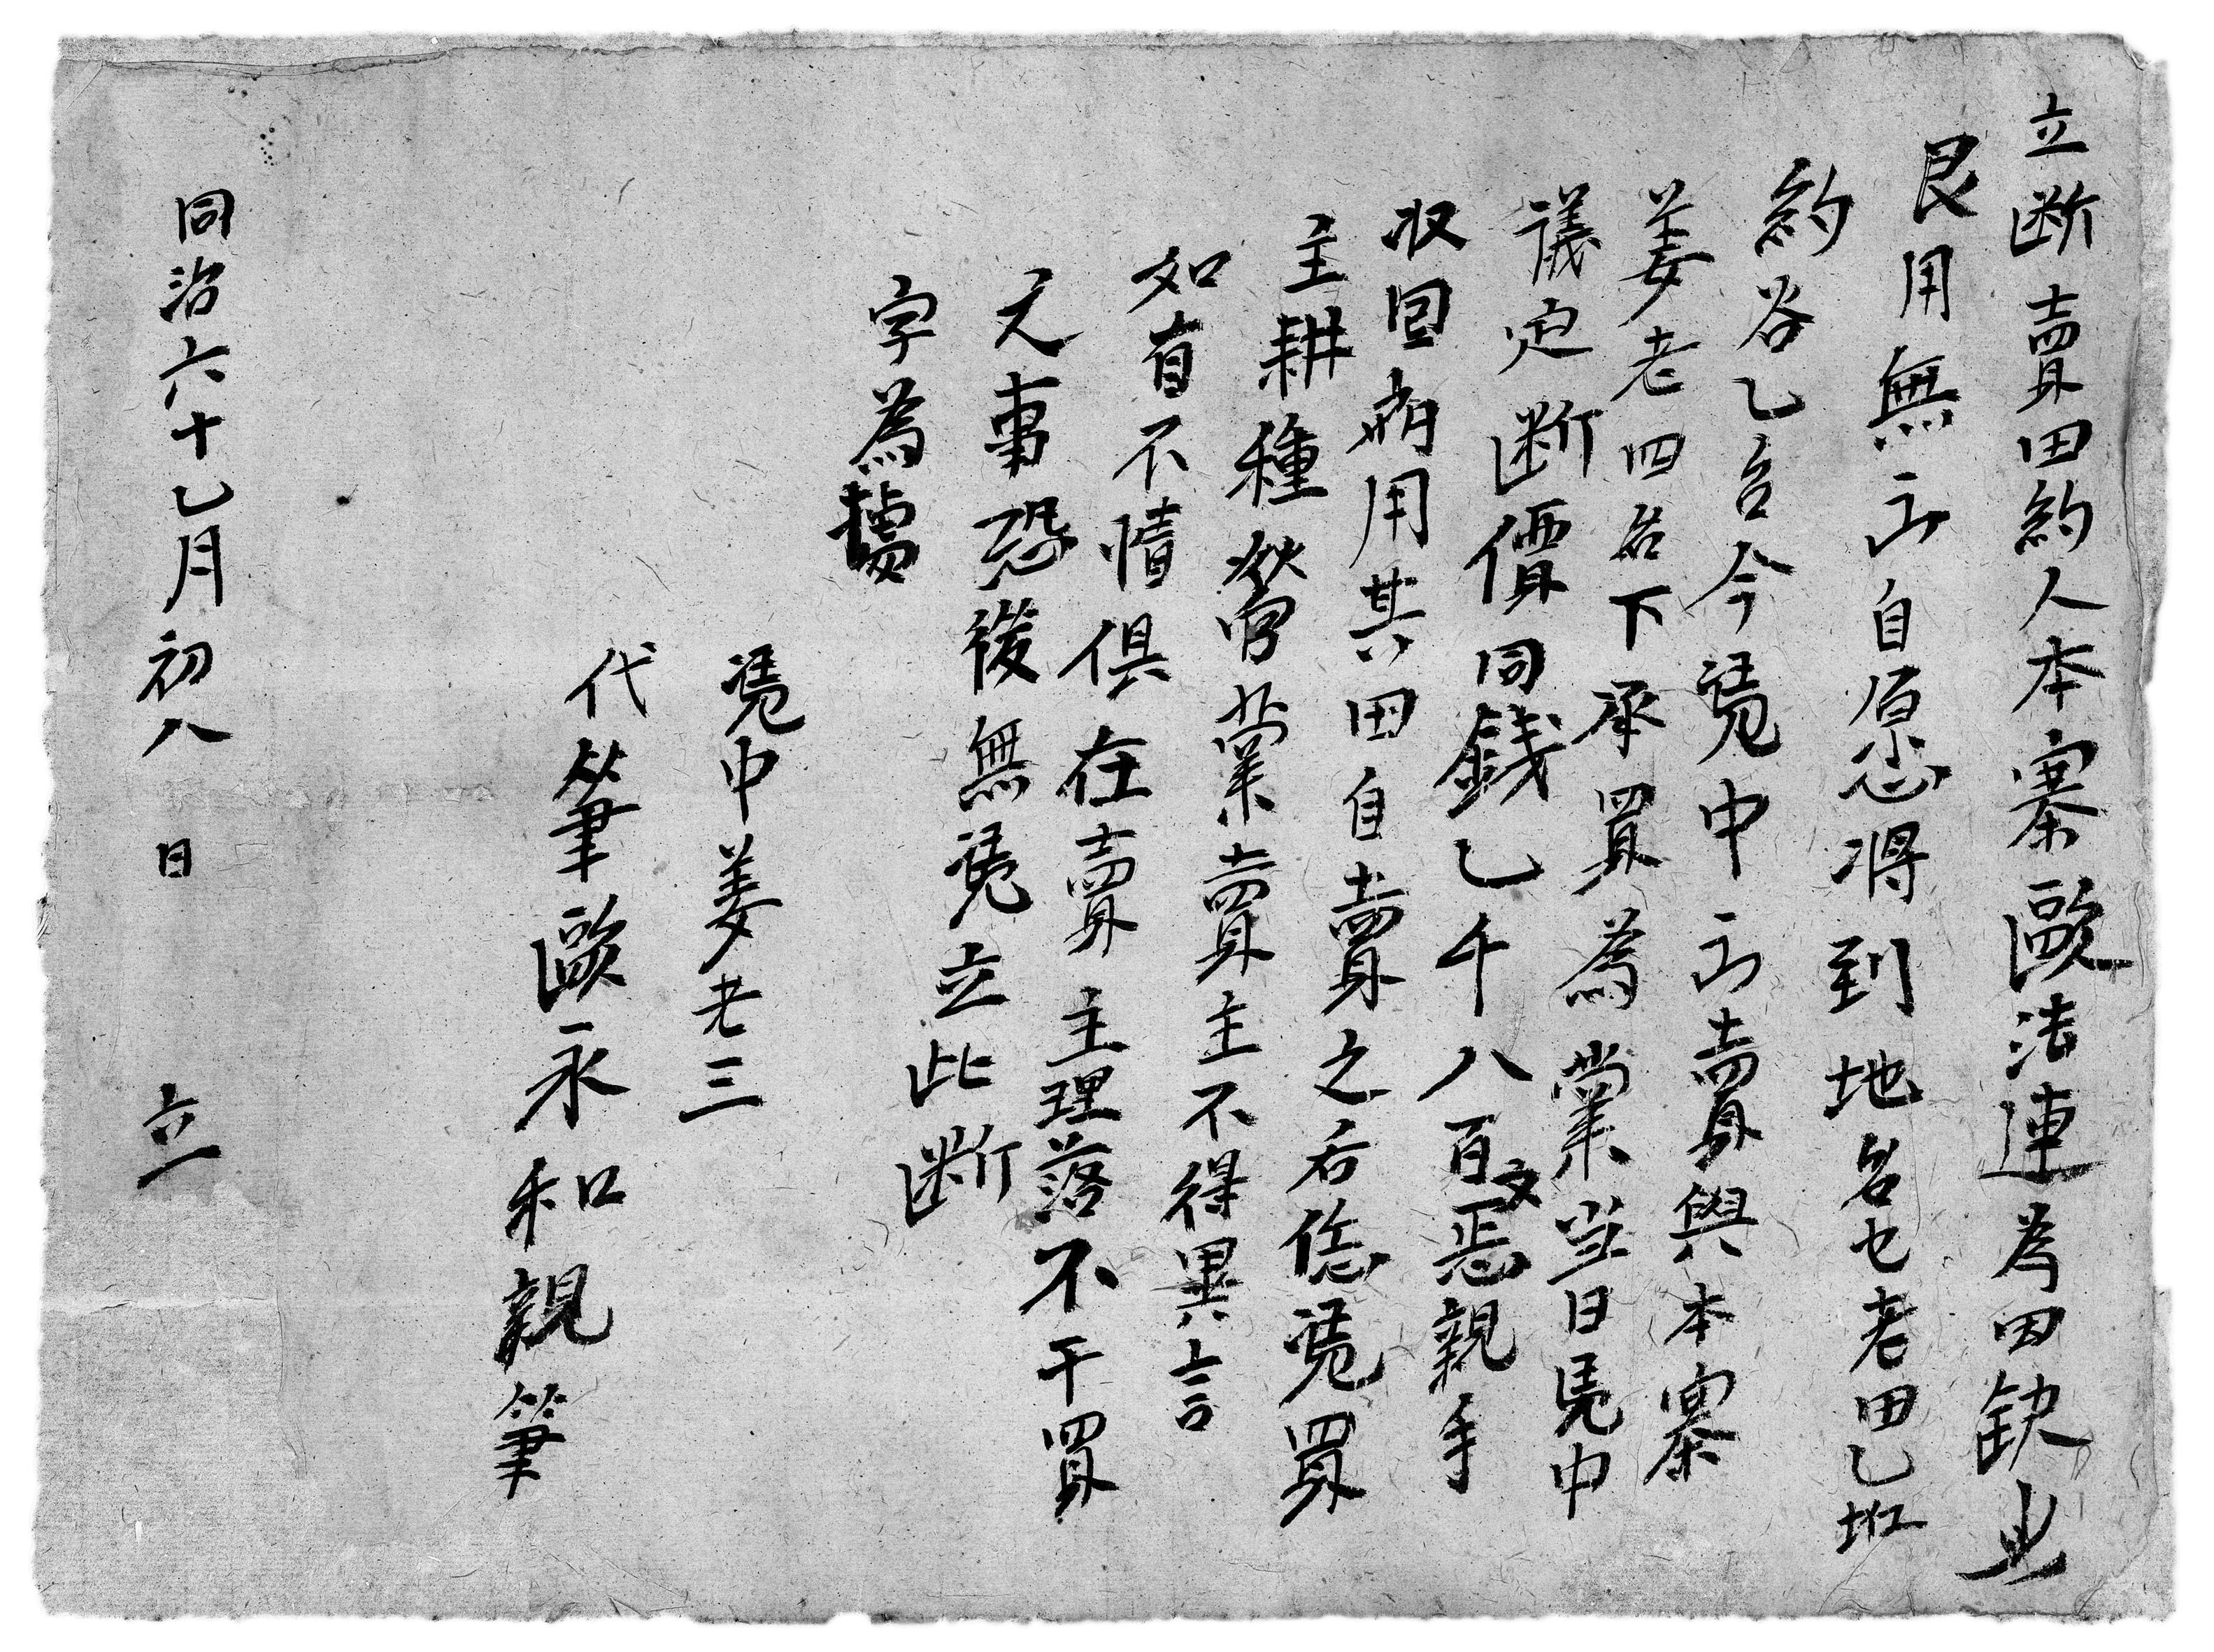 立断賣田約人本寨歐法連為田缺少
艮用無立自原將到地名七老田乙坵
約谷乙台今凴中立賣與本寨
姜老四名下承買為業當日凴中
議定断價同錢乙千八百文親手
收回用其田自賣之后凴買
主耕種管業賣主不得異言
如有不情俱在賣主理落不干買
主事恐後無凴立此断
字為據
凴中姜老三
代筆歐永和親筆
同治六十乙月初八日 立